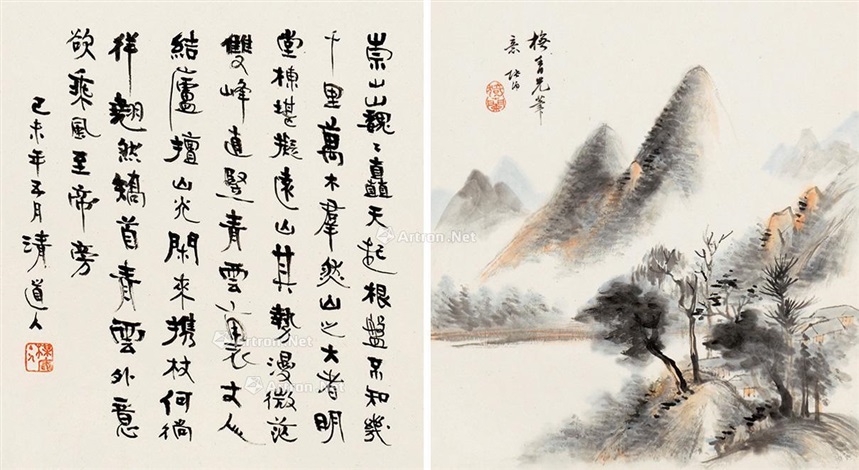 崇山巍〻矗天起根盤不知幾
千里萬木羣然山之大者明
堂棟堪擬遠山其勢漫微茫
雙峰直豎青雲裏丈人
結廬擅山光閑來攜杖何徜
徉翹然矯首青雲外意
欲乘風至帝旁
己未年五月清道人
筆
意
Artron.Net
Artron.Net
Artron.Net
Artron.Net